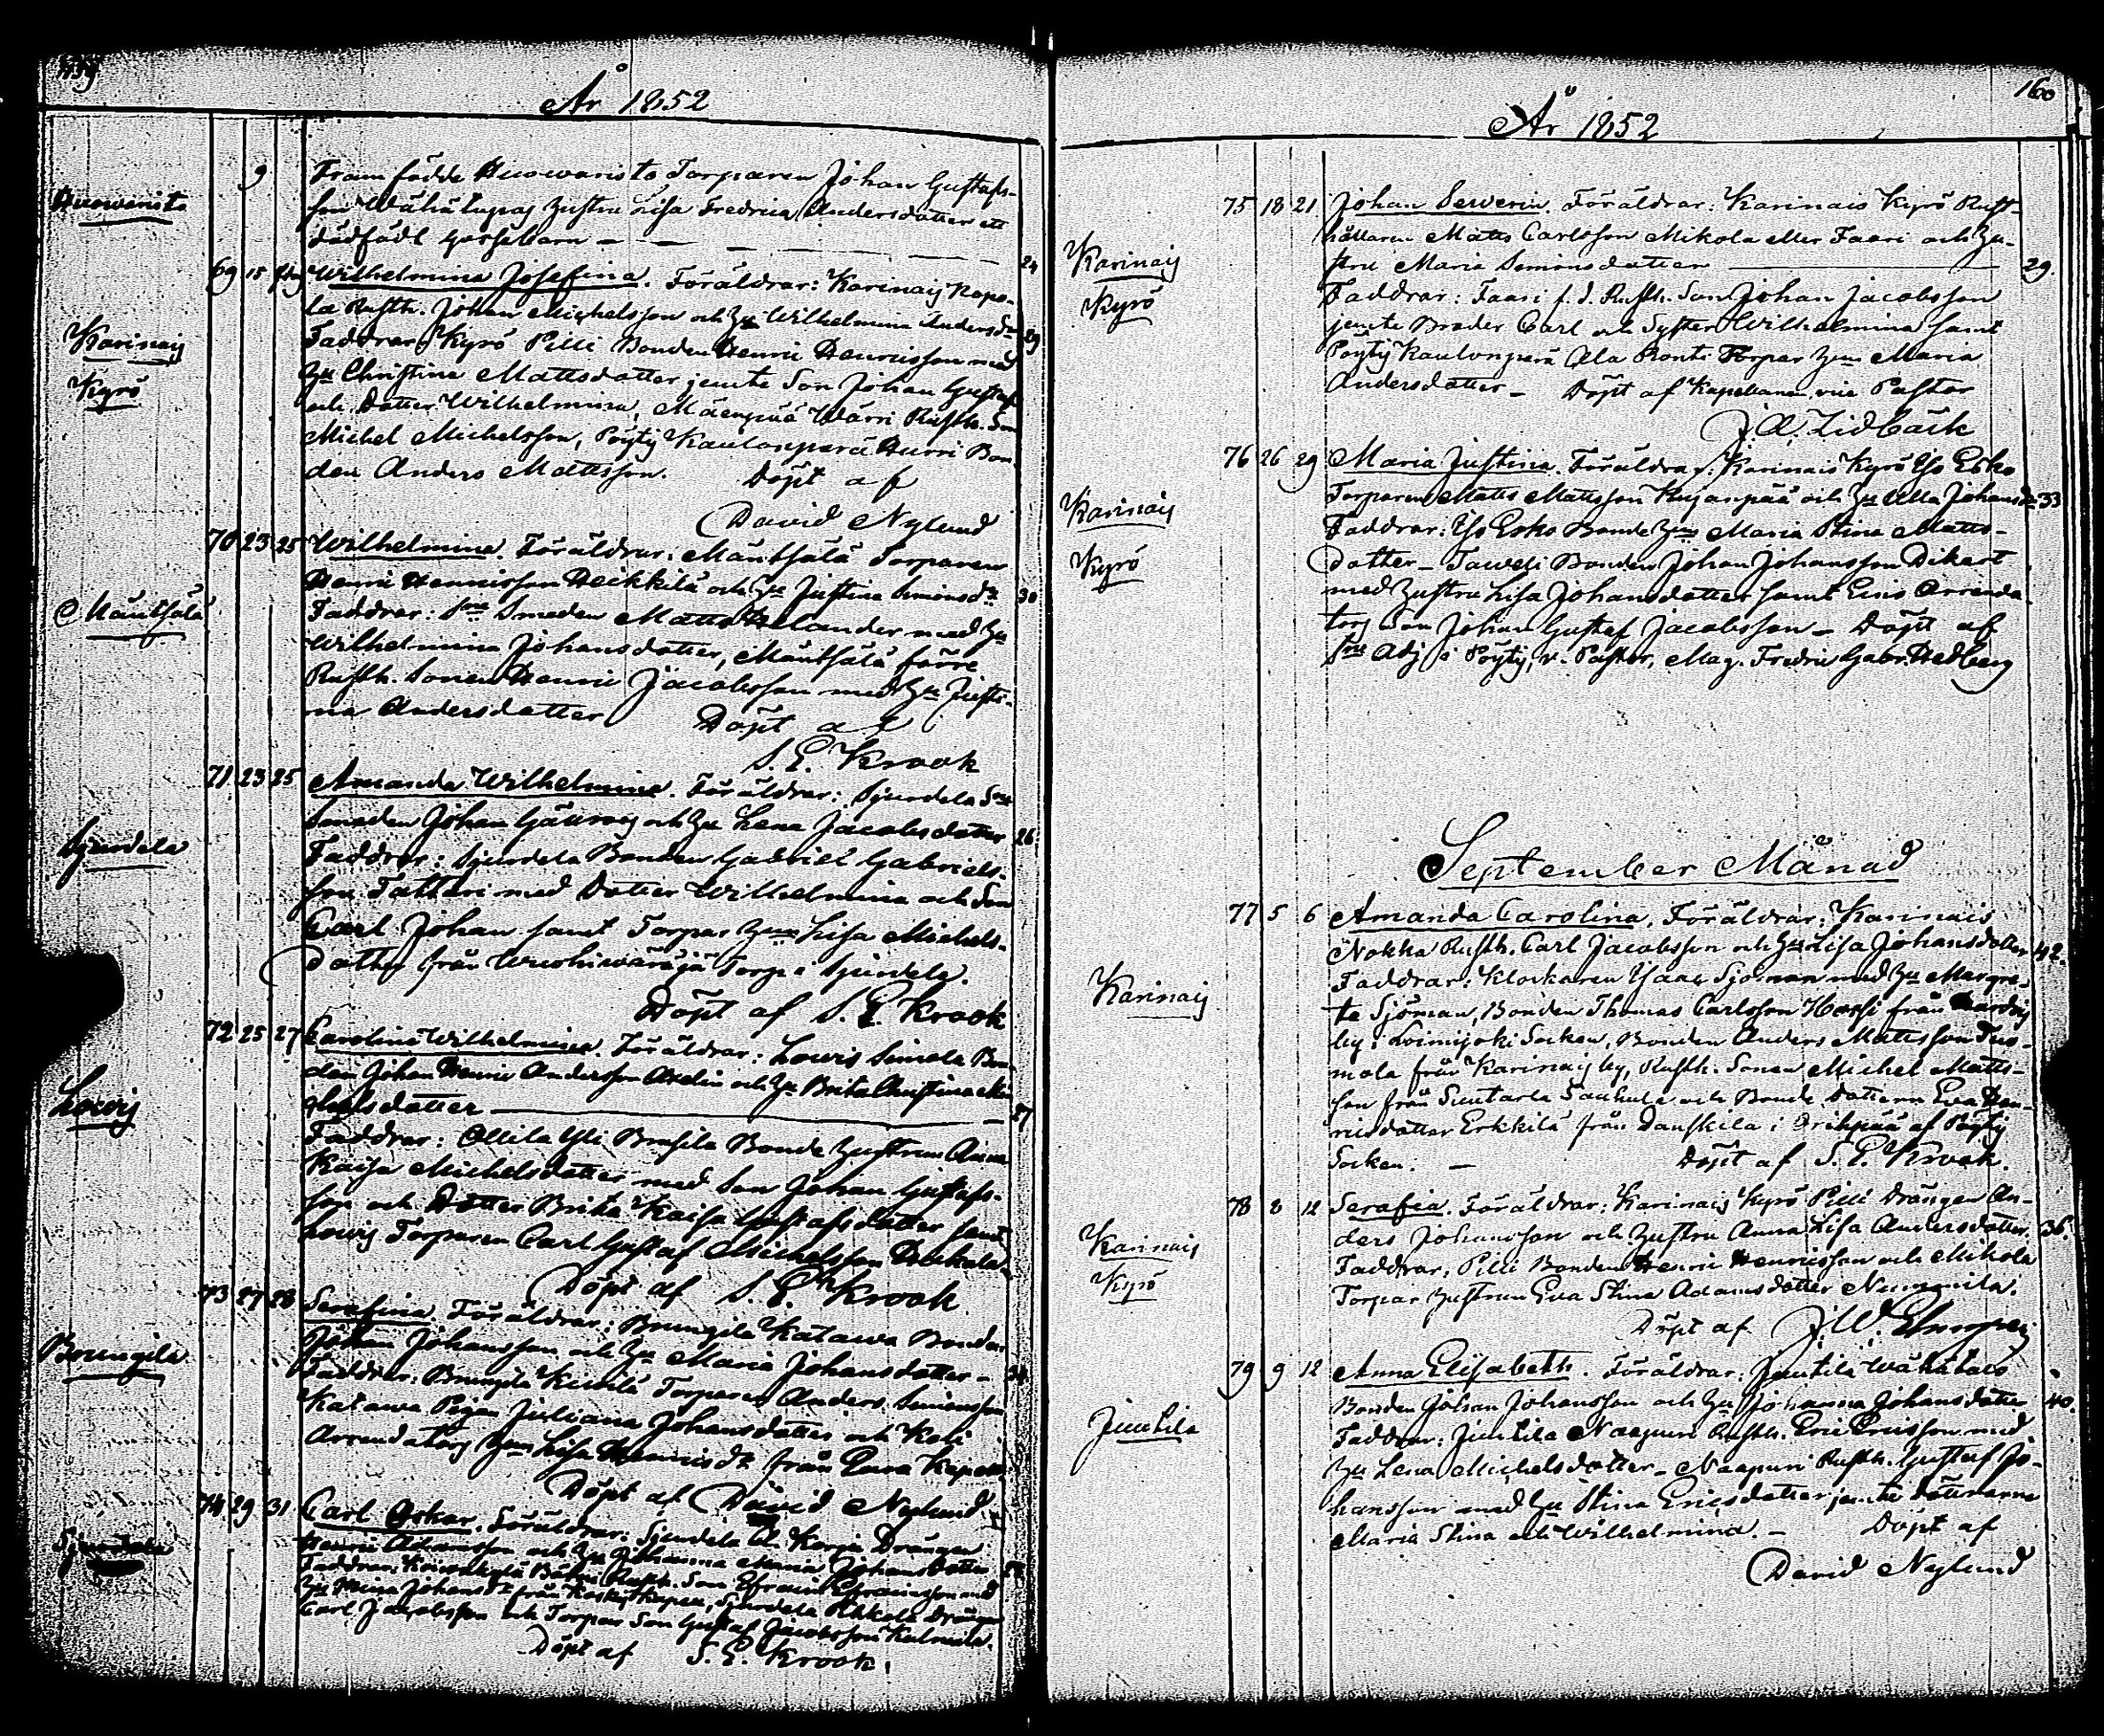 159
År 1852
Huowaristo
9 Framfödde Huowaristo Torparen Johan Gustafs-
son Wähätupas hustru Lisa Fredrica Andersdotter ett
dödfödt gossebarn — 24
Karinais
Kyrö
69 15 Wilhelmina Josefina. Föräldrar: Karinais Kapo-
la Rusth. Johan Michelsson och Hu Wilhelmina Andersdr 29
Faddrar: Kyrö Pilli Bonden Henric Henricsson med
Hu Christina Mattsdotter jemte Son Johan Gustaf
och Dotter Wilhelmina, Mäenpää Wärri Rusth. Son
Michel Michelsson, Pöyty Kaulanperä Hurri Bon-
den Anders Mattsson. Döpt af
David Nylund
Mäntsälä
70 23 25 Wilhelmina. Föräldrar: Mäntsälä Torparen
Henric Henricsson Heikkilä och Hu Justina Simonsdr 30
Faddrar: Sne Smeden Matts Helander med Hu
Wilhelmina Johansdotter, Mäntsälä förre
Rusth. Sonen Henric Jacobsson med Hu Justi-
na Andersdotter Döpt af
S. E. Krook
Sjundela
71 23 25 Amanda Wilhelmina. Föräldrar: Sjundela Sne
Smeden Johan och Hu Lena Jacobsdotter 26
Faddrar: Sjundela Bonden Gabriel Gabriels-
son Tattari med Dotter Wilhelmina och Son
Carl Johan samt Torpar Hun Lisa Michels-
dotter från Torp i Sjundela.
Döpt af S. E. Krook
Lowis
72 25 27 Carolina Wilhelmina. Föräldrar: Lowis Simola Bon-
den Johan Henric Andersson Axelin och Hu Brita Christina Mi-
chelsdotter — 27
Faddrar: Ollila Yli Brusila Bonde Hustrun Anna
Kaisa Michelsdotter med Son Johan Gustafs-
son och Dotter Brita Kaisa Gustafsdotter samt
Lowis Torparen Carl Gustaf Michelsson
Döpt af S. E. Krook
Brungila
73 27 28 Serafina. Föräldrar: Brungila Katawa Bonden
Johan Johansson och Hu Maria Johansdotter —
Faddrar: Brungila Torparen Anders Simonsson
Katawa Pigan Juliana Johansdotter och Koli
Arrendators Hun Lisa Henricsdr från Eura Kapell
Döpt af David Nylund
Sjundela
74 29 31 Carl Oskar. Föräldrar: Sjundela A. Korpi Drängen
Henric Adamsson och Hu Johanna Maria Johansdotter
Faddrar: Rusth. Son Efraim Efraimsson med
Hu Mina Johansdr från Koskis Kapell, Sjundela Pikkola Dräng
Carl Jacobsson och Torpar Son Gustaf Jacobsson
Döpt af S. E. Krook.
160
År 1852
Karinais
Kyrö
75 18 21 Johan Sewerin. Föräldrar: Karinais Kyrö Rust-
hållaren Matts Carlsson Mikola eller Faari och Hu-
stru Maria Simonsdotter — 29
Faddrar: Faari f. d. Rusth. Son Johan Jacobsson
jemte Broder Carl och Syster Wilhelmina samt
Pöyty Kaulanperä Ala Ronti Torpar Hun Maria
Andersdotter — Döpt af Kapellanen, vice Pastor
J. A. Lidbäck
Karinais
Kyrö
76 26 29 Maria Justina. Föräldrar: Karinais Kyrö Iso Esko
Torparen Matts Mattsson Kujanpää och Hu Ulla Johansdr 33
Faddrar: Iso Esko Bonde Hun Maria Stina Matts-
dotter — Taweli Bonden Johan Johansson Dikert
med Hustru Lisa Johansdotter samt Eric Arrenda-
tors Son Johan Gustaf Jacobsson — Döpt af
Sne Adj. i Pöyty, v. Pastor, Mag. Fredric Gabr. Hedberg
September Månad
Karinais
77 5 6 Amanda Carolina. Föräldrar: Karinais
Nokka Rusth. Carl Jacobsson och Hu Lisa Johansdotter 42.
Faddrar: Klockaren Isaac Sjöman med Hu Margre-
ta Sjöman, Bonden Thomas Carlsson Hossi från
by i Loimijoki Socken, Bonden Anders Mattsson Tuo-
mola från Karinais by, Rusth. Sonen Michel Matts-
son från Suutarla Saukula och Bonde Dottern Eva Hen-
ricsdotter Erkkilä från Danskila i Orihpää af Pöyty
Socken. — Döpt af S. E. Krook.
Karinais
Kyrö
78 8 12 Serafia. Föräldrar: Karinais Kyrö Pilli Drängen An-
ders Johansson och Hustru Anna Lisa Andersdotter. 36.
Faddrar: Pilli Bonden Henric Henricsson och Mikola
Torpar Hustrun Eva Stina Adamsdotter Nummila.
Döpt af J. W.
Juutila
79 9 12 Anna Elisabeth. Föräldrar: Juutila Wähätalo
Bonden Johan Johansson och Hu Johanna Johansdotter 40.
Faddrar: Juutila Naapuri Rusth. Eric Ericsson med
Hu Lena Michelsdotter — Naapuri Rusth. Gustaf Jo-
hansson med Hu Stina Ericsdotter jemte Döttrarne
Maria Stina och Wilhelmina. — Döpt af
David Nylund